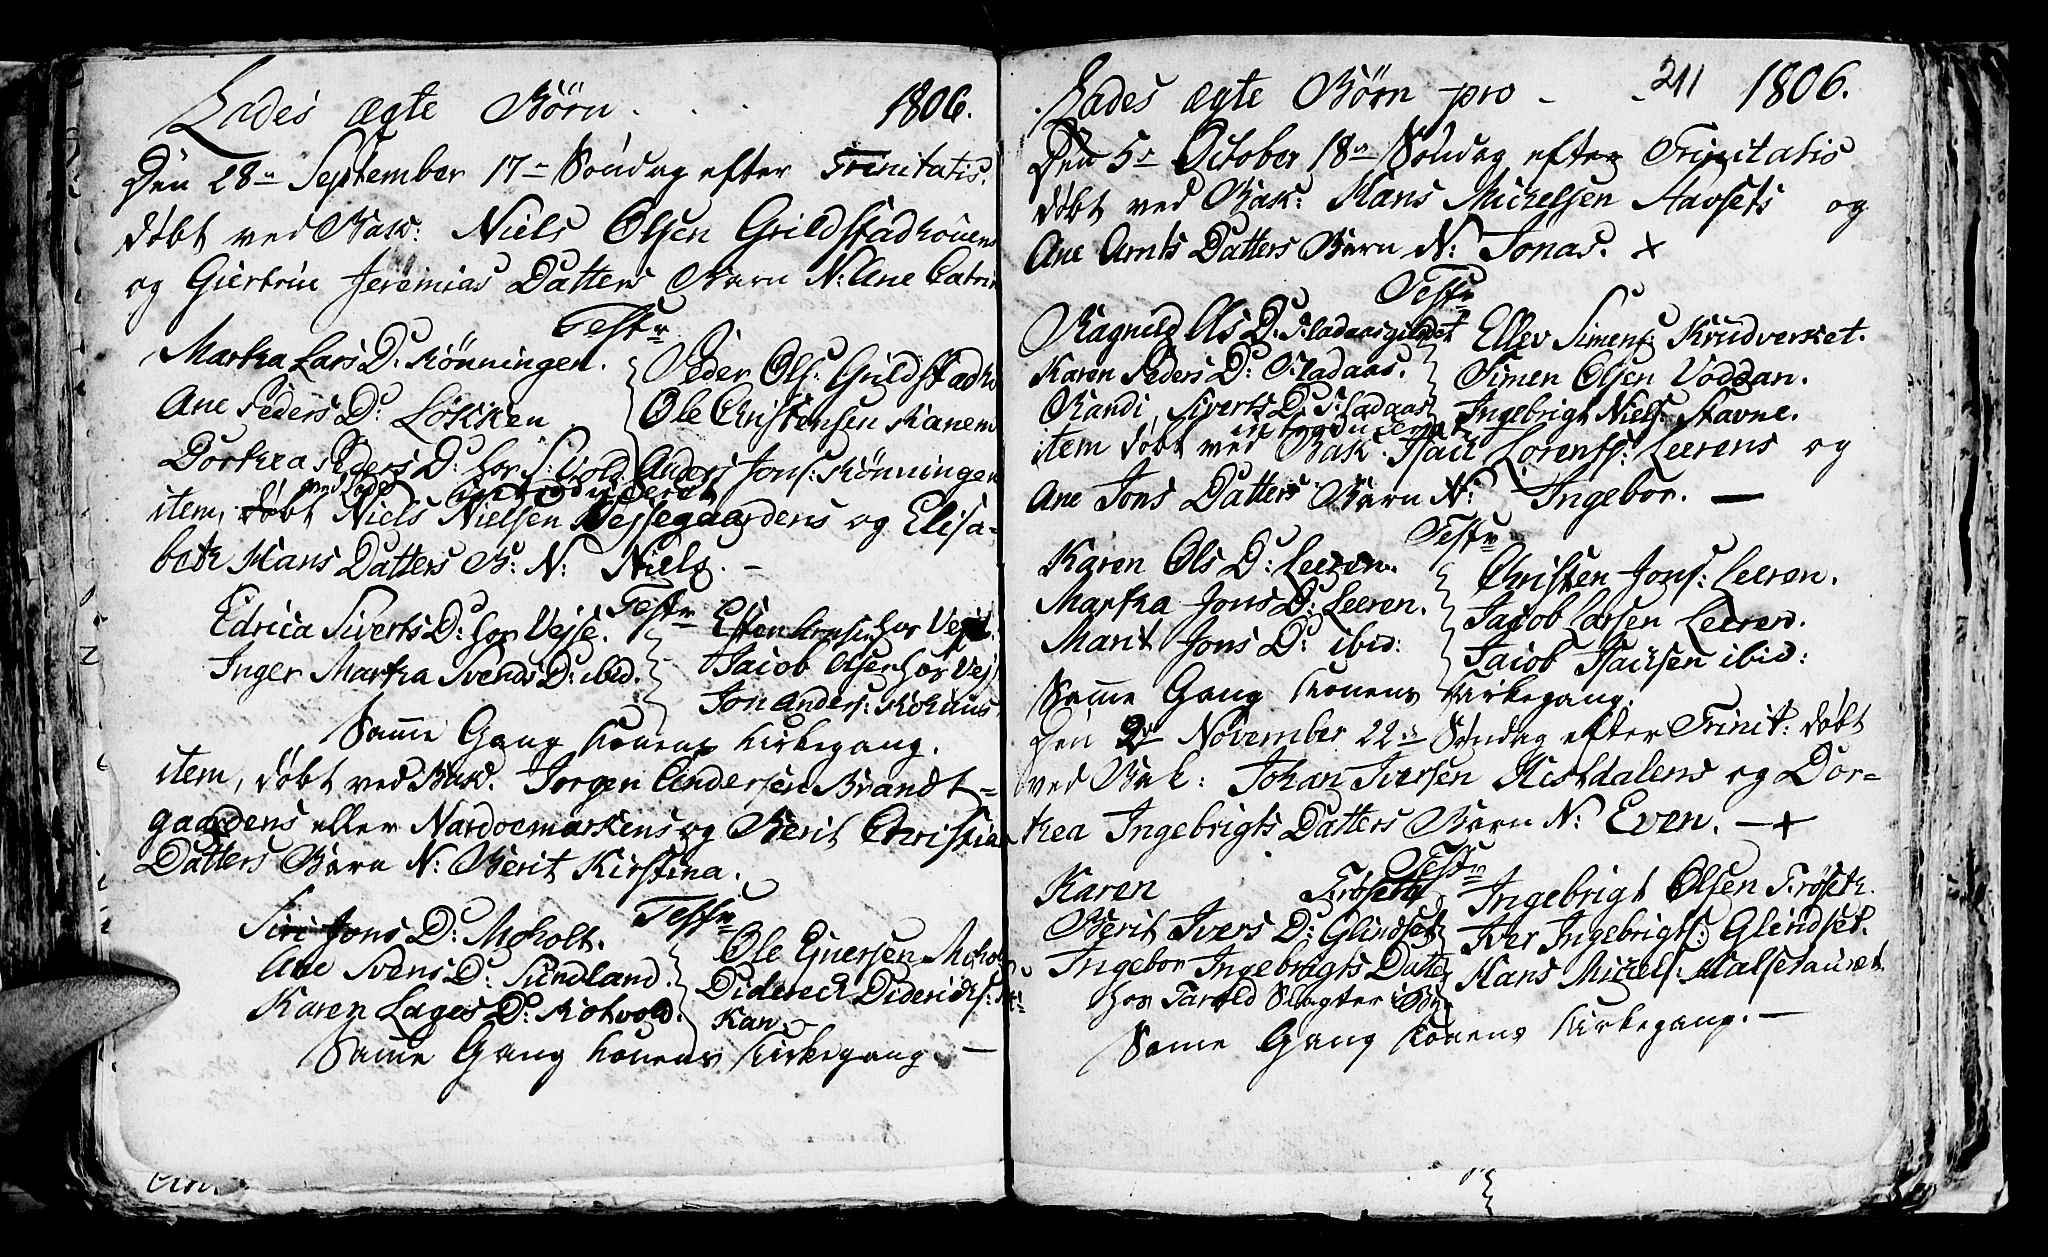 Lades ægte Börn 1806.
Den 28 September 17 Söndag efter Trinitatis.
döbt ved Bakk: Niels Olsen Grildstadhouens
og Giertrin Jeremias Datters Barn N: Ane Catrin
Testr
Martha Lars D: Rönningen.
Ane Peders D: Lökken
Dorthea Peders D: hos S: Vold
Peder Ols: Grildstadho
Ole Christensen Ranem
Anders Jons: Rönningen
ved Lade introduceret
item, döbt Niels Nielsen Vejsegaardens og Elisa-
beth Hans Datters B: N: Niels. -
Testr
Edrica Siverts D: hos Vejse.
Inger Martha Svends D: ibid.
Esten hos Vejse.
Jacob Olsen hos Vejs
Jon Anders:
Samme Gang Konens Kirkegang.
item, döbt ved Bakk. Jörgen Andersen Brandt-
gaardens eller Nardoemarkens og Berit Christian
Datters Barn N: Berit Kirstina.
Testr
Siri Jons D: Moholt.
Ane Svens D: Sundland.
Karen Lages D: Rotvold.
Ole Ejnersen Moho
Didereck Didericks:
Kan
Samme Gang Konens Kirkegang. -
Lades ægte Börn pro - - 211 1806.
Den 5 October 18 Söndag efter Trinitatis
döbt ved Bak: Hans Mickelsen Havsets og
Ane Arnts Datters Barn N: Jonas. +
Testr
Ragnild Ols D: Sladaasgrindet
Karen Peders D: Sladaas.
Randi Siverts D: Sladaas
Ellev Simens: Krudverket.
Simen Olsen Voddan.
Ingebrigt Niels: Stavne.
introduceret
item döbt ved Bak. Isack Lorents: Leerens og
Ane Jons Datters Barn N: Ingebor. —
Testr
Karen Ols D: Leeren.
Martha Jons D: Leeren.
Marit Jons D: ibid:
Christen Jons: Leeren.
Jacob Larsen Leeren.
Jacob Isacksen ibid:
Samme Gang Konens Kirkegang.
Den 2 November 22 Söndag efter Trinit: döbt
ved Bak: Johan Iversen Kistdalens og Dor-
thea Ingebrigts Datters Barn N: Even. — +
Testr
Karen Fröseth
Berit Ivers D: Glindset
Ingebor Ingebrigts Datter
hos Tarald Slagter i Bye
Ingebrigt Olsen Fröseth.
Iver Ingebrigts: Glindset.
Hans Mickels: Malsetauret
Samme Gang Konens Kirkegang. —